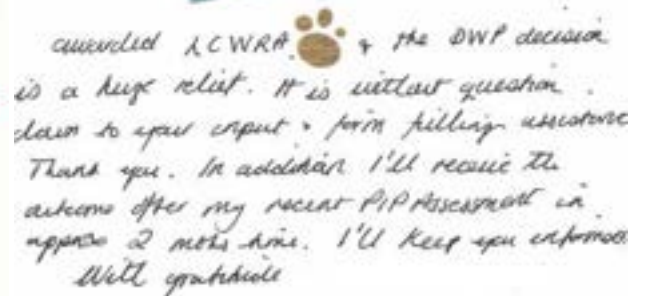 awarded LCWRA & the DWP decision
is a huge relief. It is without question
down to your input & form filling assistance
Thank you. In addition I'll receive the
outcome after my recent PIP Assessment in
approx 2 mths time. I'll keep you informed
With gratitude